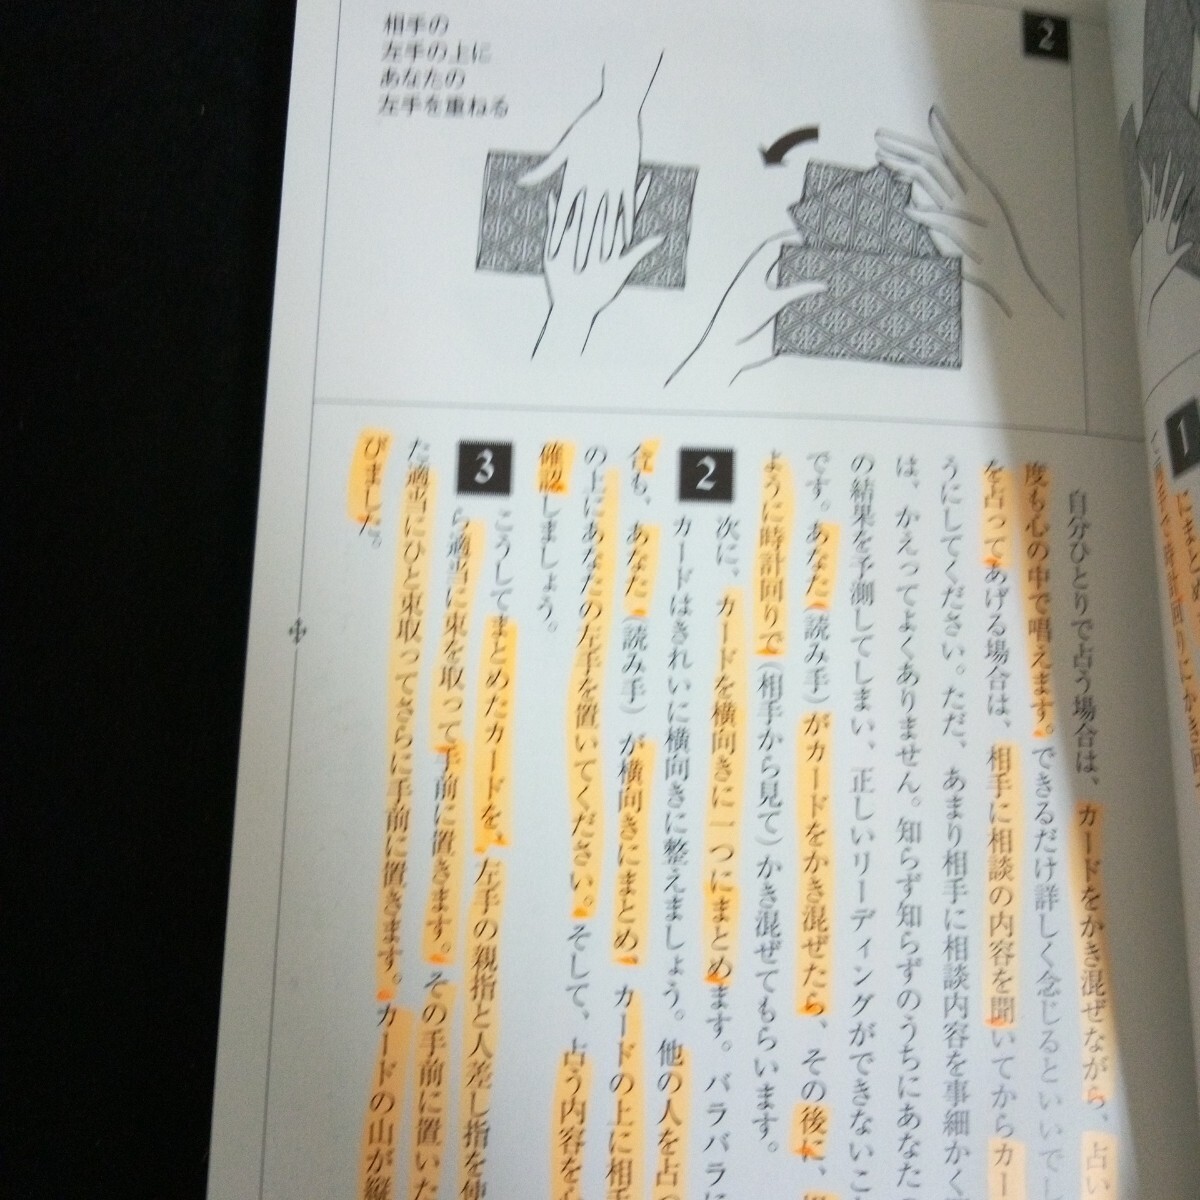 相手の
左手の上に
あなたの
左手を重ねる
2
1
自分ひとりで占う場合は、カードをかき混ぜながら、占い
度も心の中で唱えます。できるだけ詳しく念じるといいで
を占ってあげる場合は、相手に相談の内容を聞いてからカー
うにしてください。ただ、あまり相手に相談内容を事細かく
は、かえってよくありません。知らず知らずのうちにあなた
の結果を予測してしまい、正しいリーディングができないこ
です。あなた(読み手)がカードをかき混ぜたら、その後に、
ように時計回りで(相手から見て)かき混ぜてもらいます。
2
次に、カードを横向きに一つにまとめます。バラバラに
カードはきれいに横向きに整えましょう。他の人を占
合も、あなた(読み手)が横向きにまとめ、カードの上に相手
の上にあなたの左手を置いてください。そして、占う内容を
確認しましょう。
3
こうしてまとめたカードを、左手の親指と人差し指を使
ら適当に束を取って手前に置きます。その手前に置いた
た適当にひと束取ってさらに手前に置きます。カードの山が縦
びました。